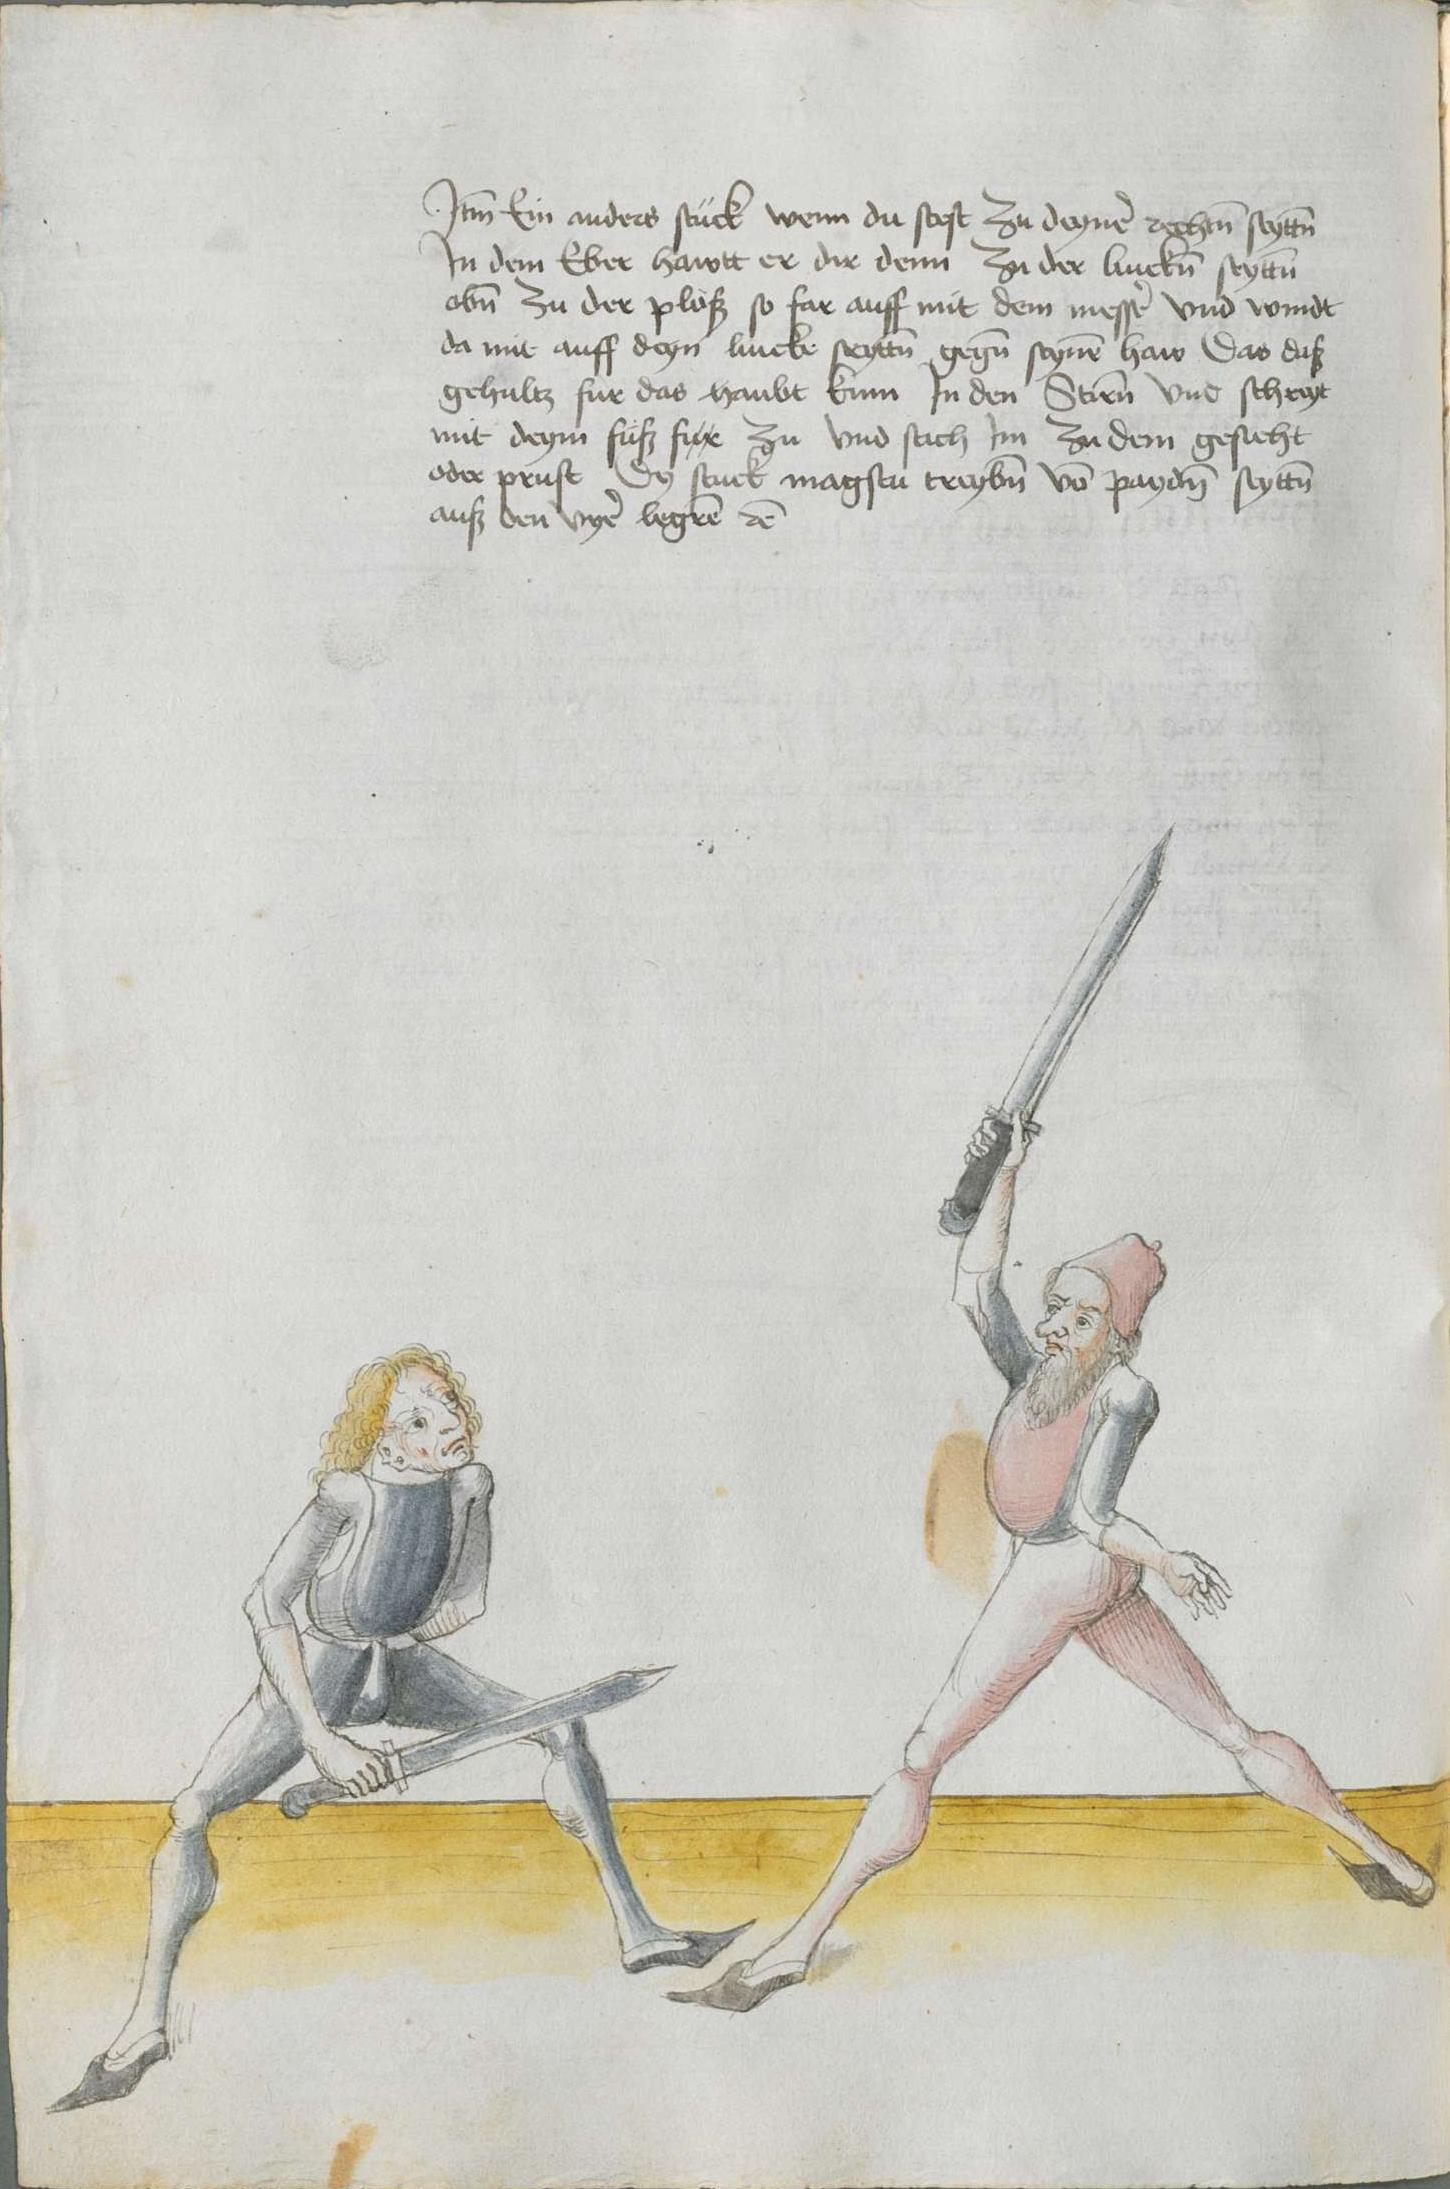 Itm Ein anders stück wenn du stest zu deyner rechtn̄ seyttn̄
In dem Eber hawtt er dir denn zu der linckn̄ seyttn̄
obn̄ zu der plöß so far auff mit dem messer̄ vnd windt
da mit auff deyn lincke seyttn̄ gegn̄ seynē haw Das daß
gehultz fur das haubt kum In den Stirn̄ Vnd schreyt
mit deym fuß zu Vnd stich Im zu dem gesicht
oder prust Dy stuck magstu treybn̄ vō paydn̄ seyttn̄
auß den vyer̄ legrē rē